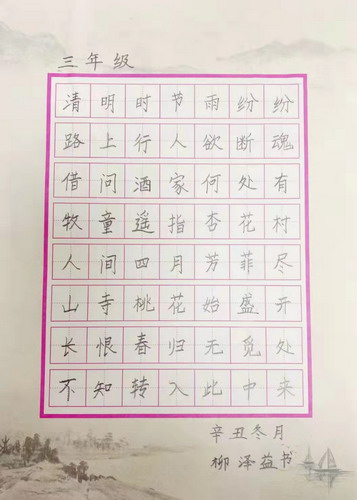 三年级
清明时节雨纷纷
路上行人欲断魂
借问酒家何处有
牧童遥指杏花村
人间四月芳菲尽
山寺桃花始盛开
长恨春归无觅处
不知转入此中来
辛丑冬月
柳泽益书